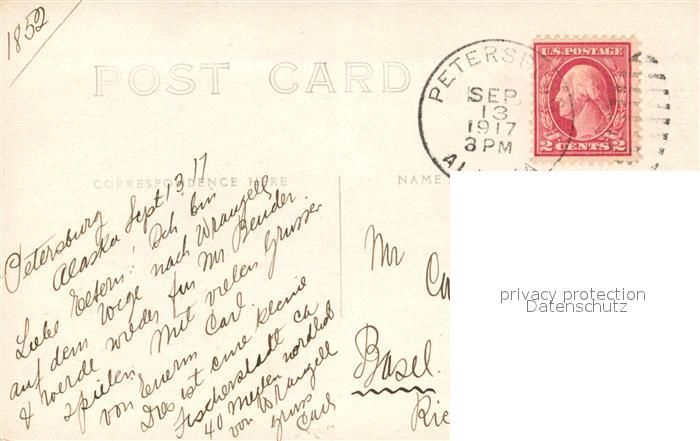 1852
POST CARD
PETERSB
SEP
13
1917
3 PM
AL
U.S. POSTAGE
2 CENTS 2
CORRESPONDENCE HERE
NAME
Petersburg
Alaska Sept 13, 17
Liebe Eltern! Ich bin
auf dem Wege nach Wrangell
& werde wieder für Mr. Bender
spielen. Mit vielen Grüssen
von Euerm Carl.
Dies ist eine kleine
Fischerstadt ca
40 Meilen nördlich
von Wrangell
Gruss
Carl
Mr Ca
Basel.
Rie
privacy protection
Datenschutz